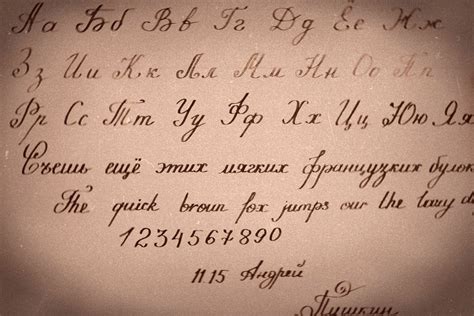 Аа Бб Вв Гг Дд Ее Жж
Зз Ии Кк Лл Мм Нн Оо Пп
Рр Сс Тт Уу Фф Хх Цц Юю Яя
Съешь ещё этих мягких французских булок
The quick broun fox jumps our the lazy d
1234567890
11.15 Андрей
Пушкин